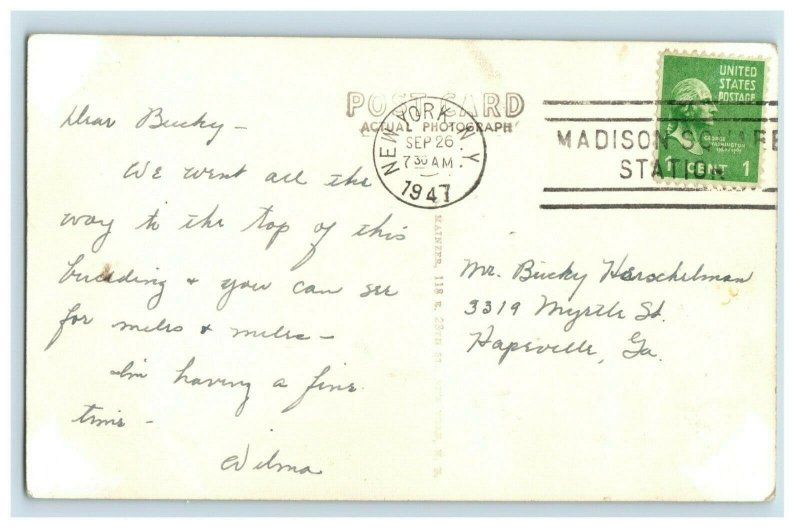 POST CARD
ACTUAL PHOTOGRAPH
NEW YORK N.Y
SEP 26
7 30 AM
1947
MADISON SQUARE
STATION
UNITED
STATES
POSTAGE
GEORGE
WASHINGTON
1 CENT 1
Dear Bucky -
We went all the
way to the top of this
building & you can see
for miles & miles -
I'm having a fine
time -
Wilma
MAINZER, 118 E. 28TH ST
Mr. Bucky Herschelman
3319 Myrtle St.
Hapeville, Ga.